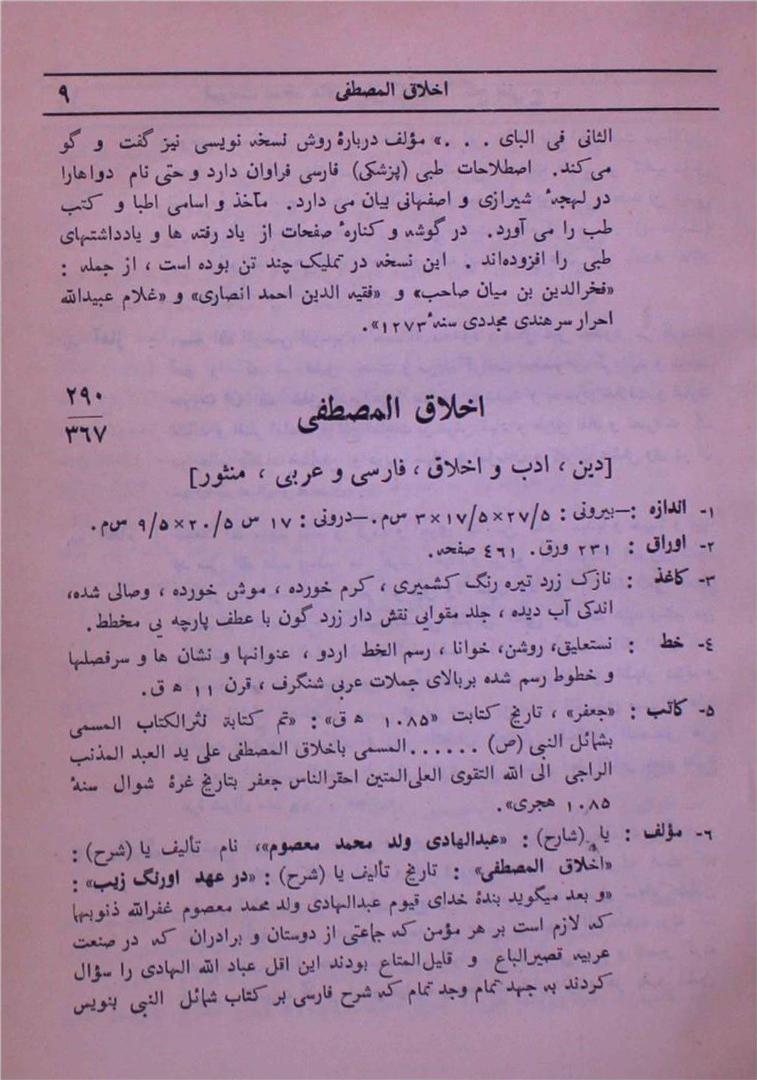 اخلاق المصطفی ۹
الثانی فی البای . . .» مؤلف دربارهٔ روش نسخه نویسی نیز گفت و گو
می کند. اصطلاحات طبی (پزشکی) فارسی فراوان دارد و حتی نام دواها را
در لهجهٔ شیرازی و اصفهانی بیان می دارد. مآخذ و اسامی اطبا و کتب
طب را می آورد. در گوشه و کنارهٔ صفحات از یاد رفته ها و یادداشتهای
طبی را افزوده‌اند . این نسخه در تملیک چند تن بوده است ، از جمله :
«فخرالدین بن میان صاحب» و «فقیه الدین احمد انصاری» و «غلام عبیدالله
احرار سرهندی مجددی سنهٔ ۱۲۷۳».
۲۹۰
۳۶۷
اخلاق المصطفی
[دین ، ادب و اخلاق ، فارسی و عربی ، منثور]
۱- اندازه :—بیرونی : ۲۷/۵×۱۷/۵×۳ س‌م.—درونی : ۱۷ س ۲۰/۵×۹/۵ س‌م.
۲- اوراق : ۲۳۱ ورق. ۴۶۱ صفحه.
۳- کاغذ : نازک زرد تیره رنگ کشمیری ، کرم خورده ، موش خورده ، وصالی شده،
اندکی آب دیده ، جلد مقوایی نقش دار زرد گون با عطف پارچه یی مخطط.
۴- خط : نستعلیق، روشن، خوانا ، رسم الخط اردو ، عنوانها و نشان ها و سرفصلها
و خطوط رسم شده بربالای جملات عربی شنگرف ، قرن ۱۱ ه ق.
۵- کاتب : «جعفر» ، تاریخ کتابت «۱۰۸۵ ه ق»: «تم کتابة نثرالکتاب المسمی
بشمائل النبی (ص) ...... المسمی باخلاق المصطفی علی ید العبد المذنب
الراجی الی الله التقوی العلی المتین احقرالناس جعفر بتاریخ غرهٔ شوال سنهٔ
۱۰۸۵ هجری».
۶- مؤلف : یا (شارح) : «عبدالهادی ولد محمد معصوم»، نام تألیف یا (شرح) :
«اخلاق المصطفی» : تاریخ تألیف یا (شرح) : «در عهد اورنگ زیب» :
«و بعد میگوید بندهٔ خدای قیوم عبدالهادی ولد محمد معصوم غفرالله ذنوبهما
که لازم است بر هر مؤمن که جماعتی از دوستان و برادران که در صنعت
عربیه قصیرالباع و قلیل‌المتاع بودند این اقل عباد الله الهادی را سؤال
کردند به جهد تمام وجد تمام که شرح فارسی بر کتاب شمائل النبی بنویس